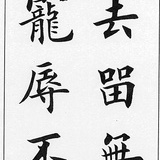 去留無
寵辱不